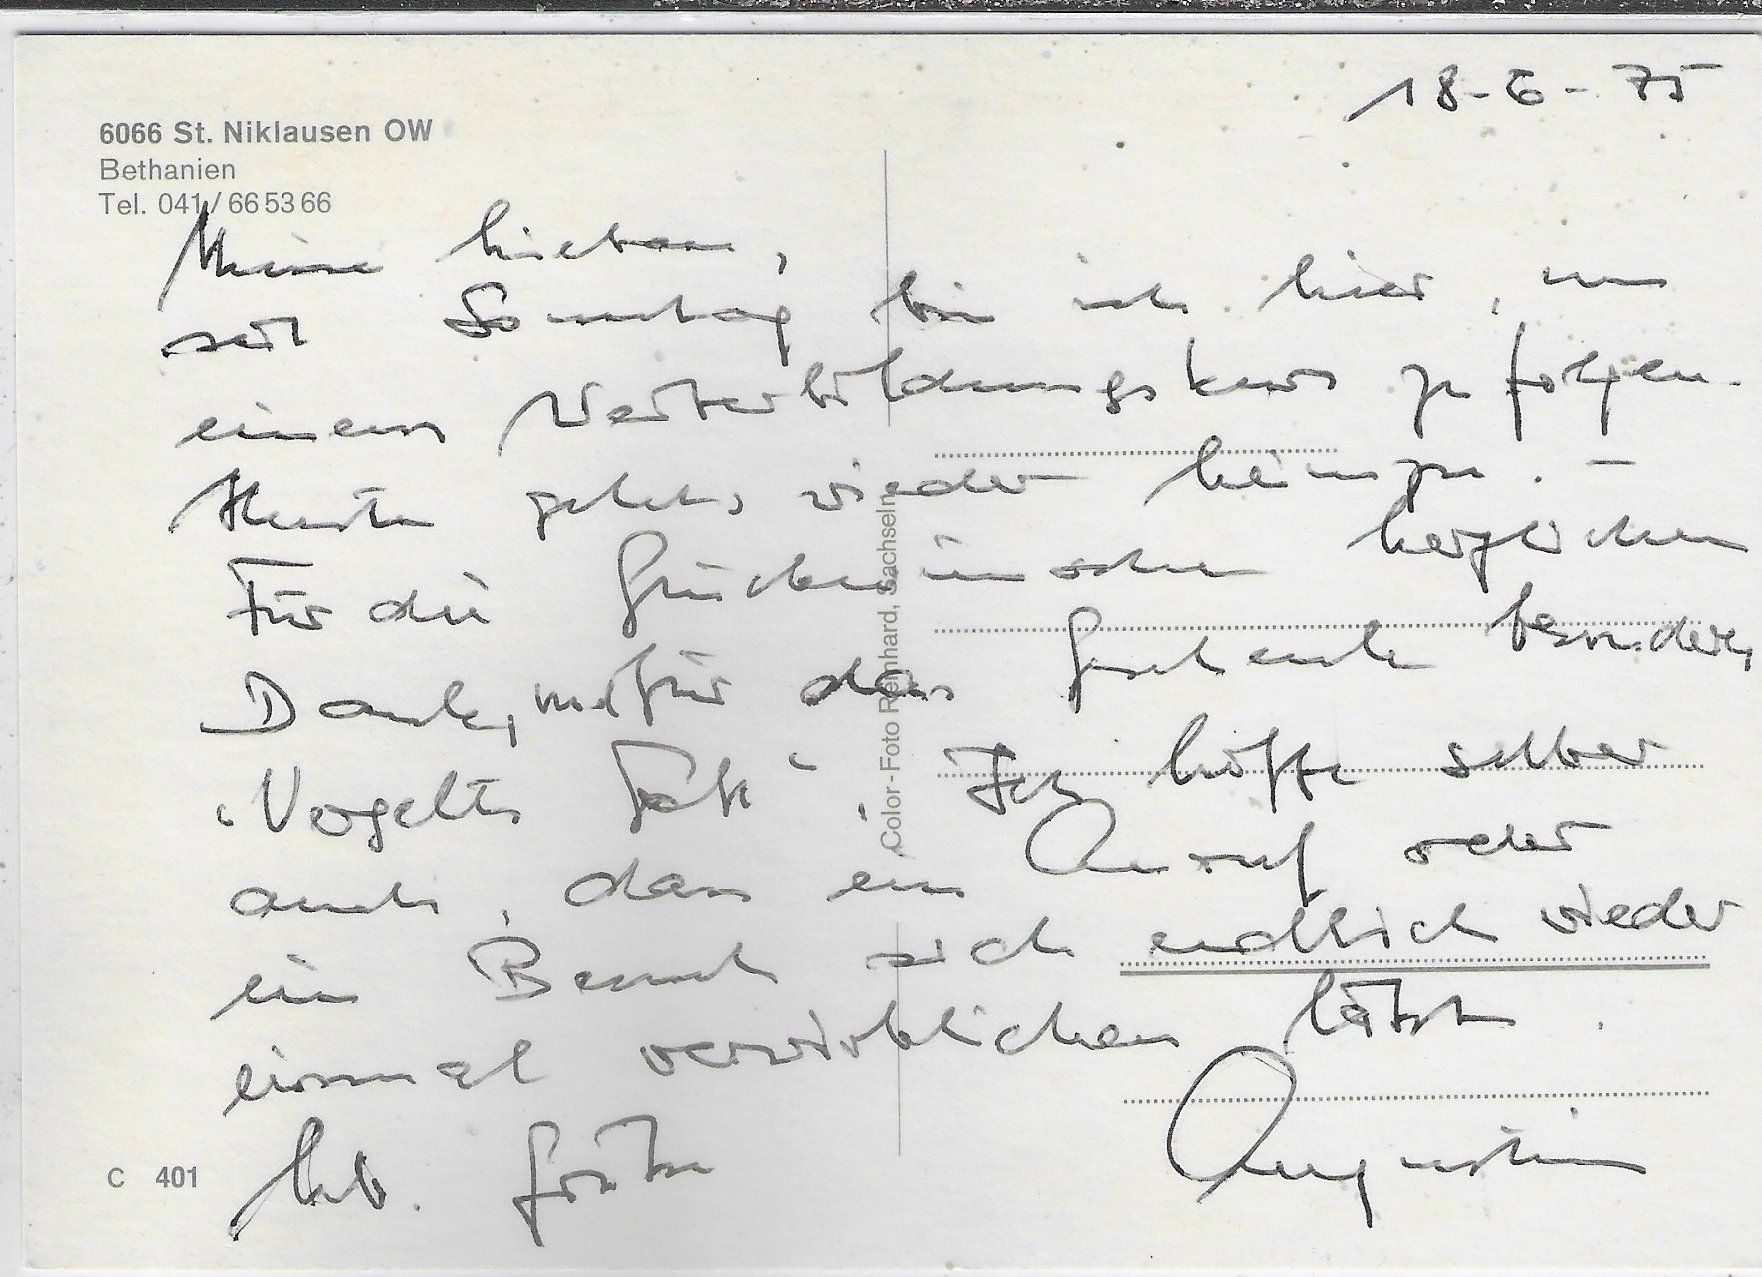 18-6-75
6066 St. Niklausen OW
Bethanien
Tel. 041/66 53 66
Meine Lieben,
seit Sonntag bin ich hier, um
einem Weiterbildungskurs zu folgen.
Heute gehts wieder heimzu. –
Für die Glückwünsche herzlichen
Dank, und für das Geschenk besonders
"Vergelts Gott". Ich hoffe selber
auch, dass ein Anruf oder
ein Besuch sich endlich wieder
einmal verwirklichen lässt.
Lb. Grüsse
Augustin
C 401
Color-Foto Reinhard, Sachseln